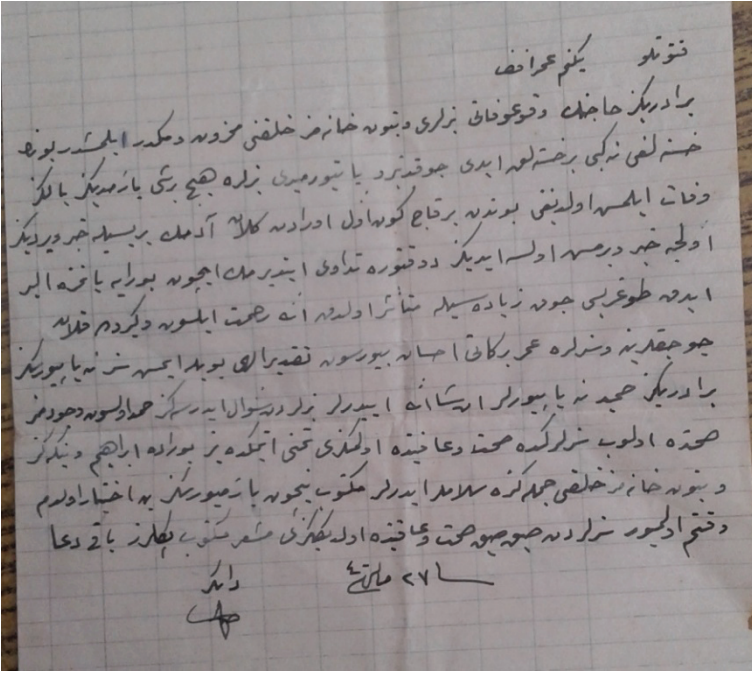 فتوتلو يكنم عمر افندی
برادريكز حاجينك وقوعوفاتی بزلری وبتون خانه مز خلقنی محزون ومكدر ايلمشدر بونك
خسته لغی نه كبی برخسته لق ايدی چوقدنبرو ياتيورميدی بزلره هيچ برشی يازمديكز يالكز
وفات ايلمش اولديغنی بوندن برقاچ كون اول اورادن كلان آدمك بريسيله خبر ويرديكز
اولجه خبر ويرمش اولسه ايديكز دوقتوره تداوی ايتديرمك ايچون بورايه يانمزه الير
ايدق طوغريسی چوق زياده سيله متأثر اولدق الله رحمت ايلسون وكروده قلان
چوجقلرينه وسزلره عمر بركاتی احسان بيورسون تقدير الهی بويله ايمش سز نه ياپيورسكز
برادريكز حميد نه ياپيورلر ان شاالله اييدرلر بزلردن سؤال ايدرسه كز حمد اولسون وجودمز
صحتده اولوب سزلركده صحت وعافيتده اولمكزی تمنی ايتمكده يز بوراده ابراهيم ويكه كز
وبتون خانه مز خلقی جمله كزه سلاملر ايدرلر مكتوب نيچون يازميورسكز بن اختيار اولدم
وقتم اولميور سزلردن صيق صيق صحت وعافيتده اولديغكزی مشعر مكتوب بكلرز باقی دعا
٢٧ مارت ٤ دائكز